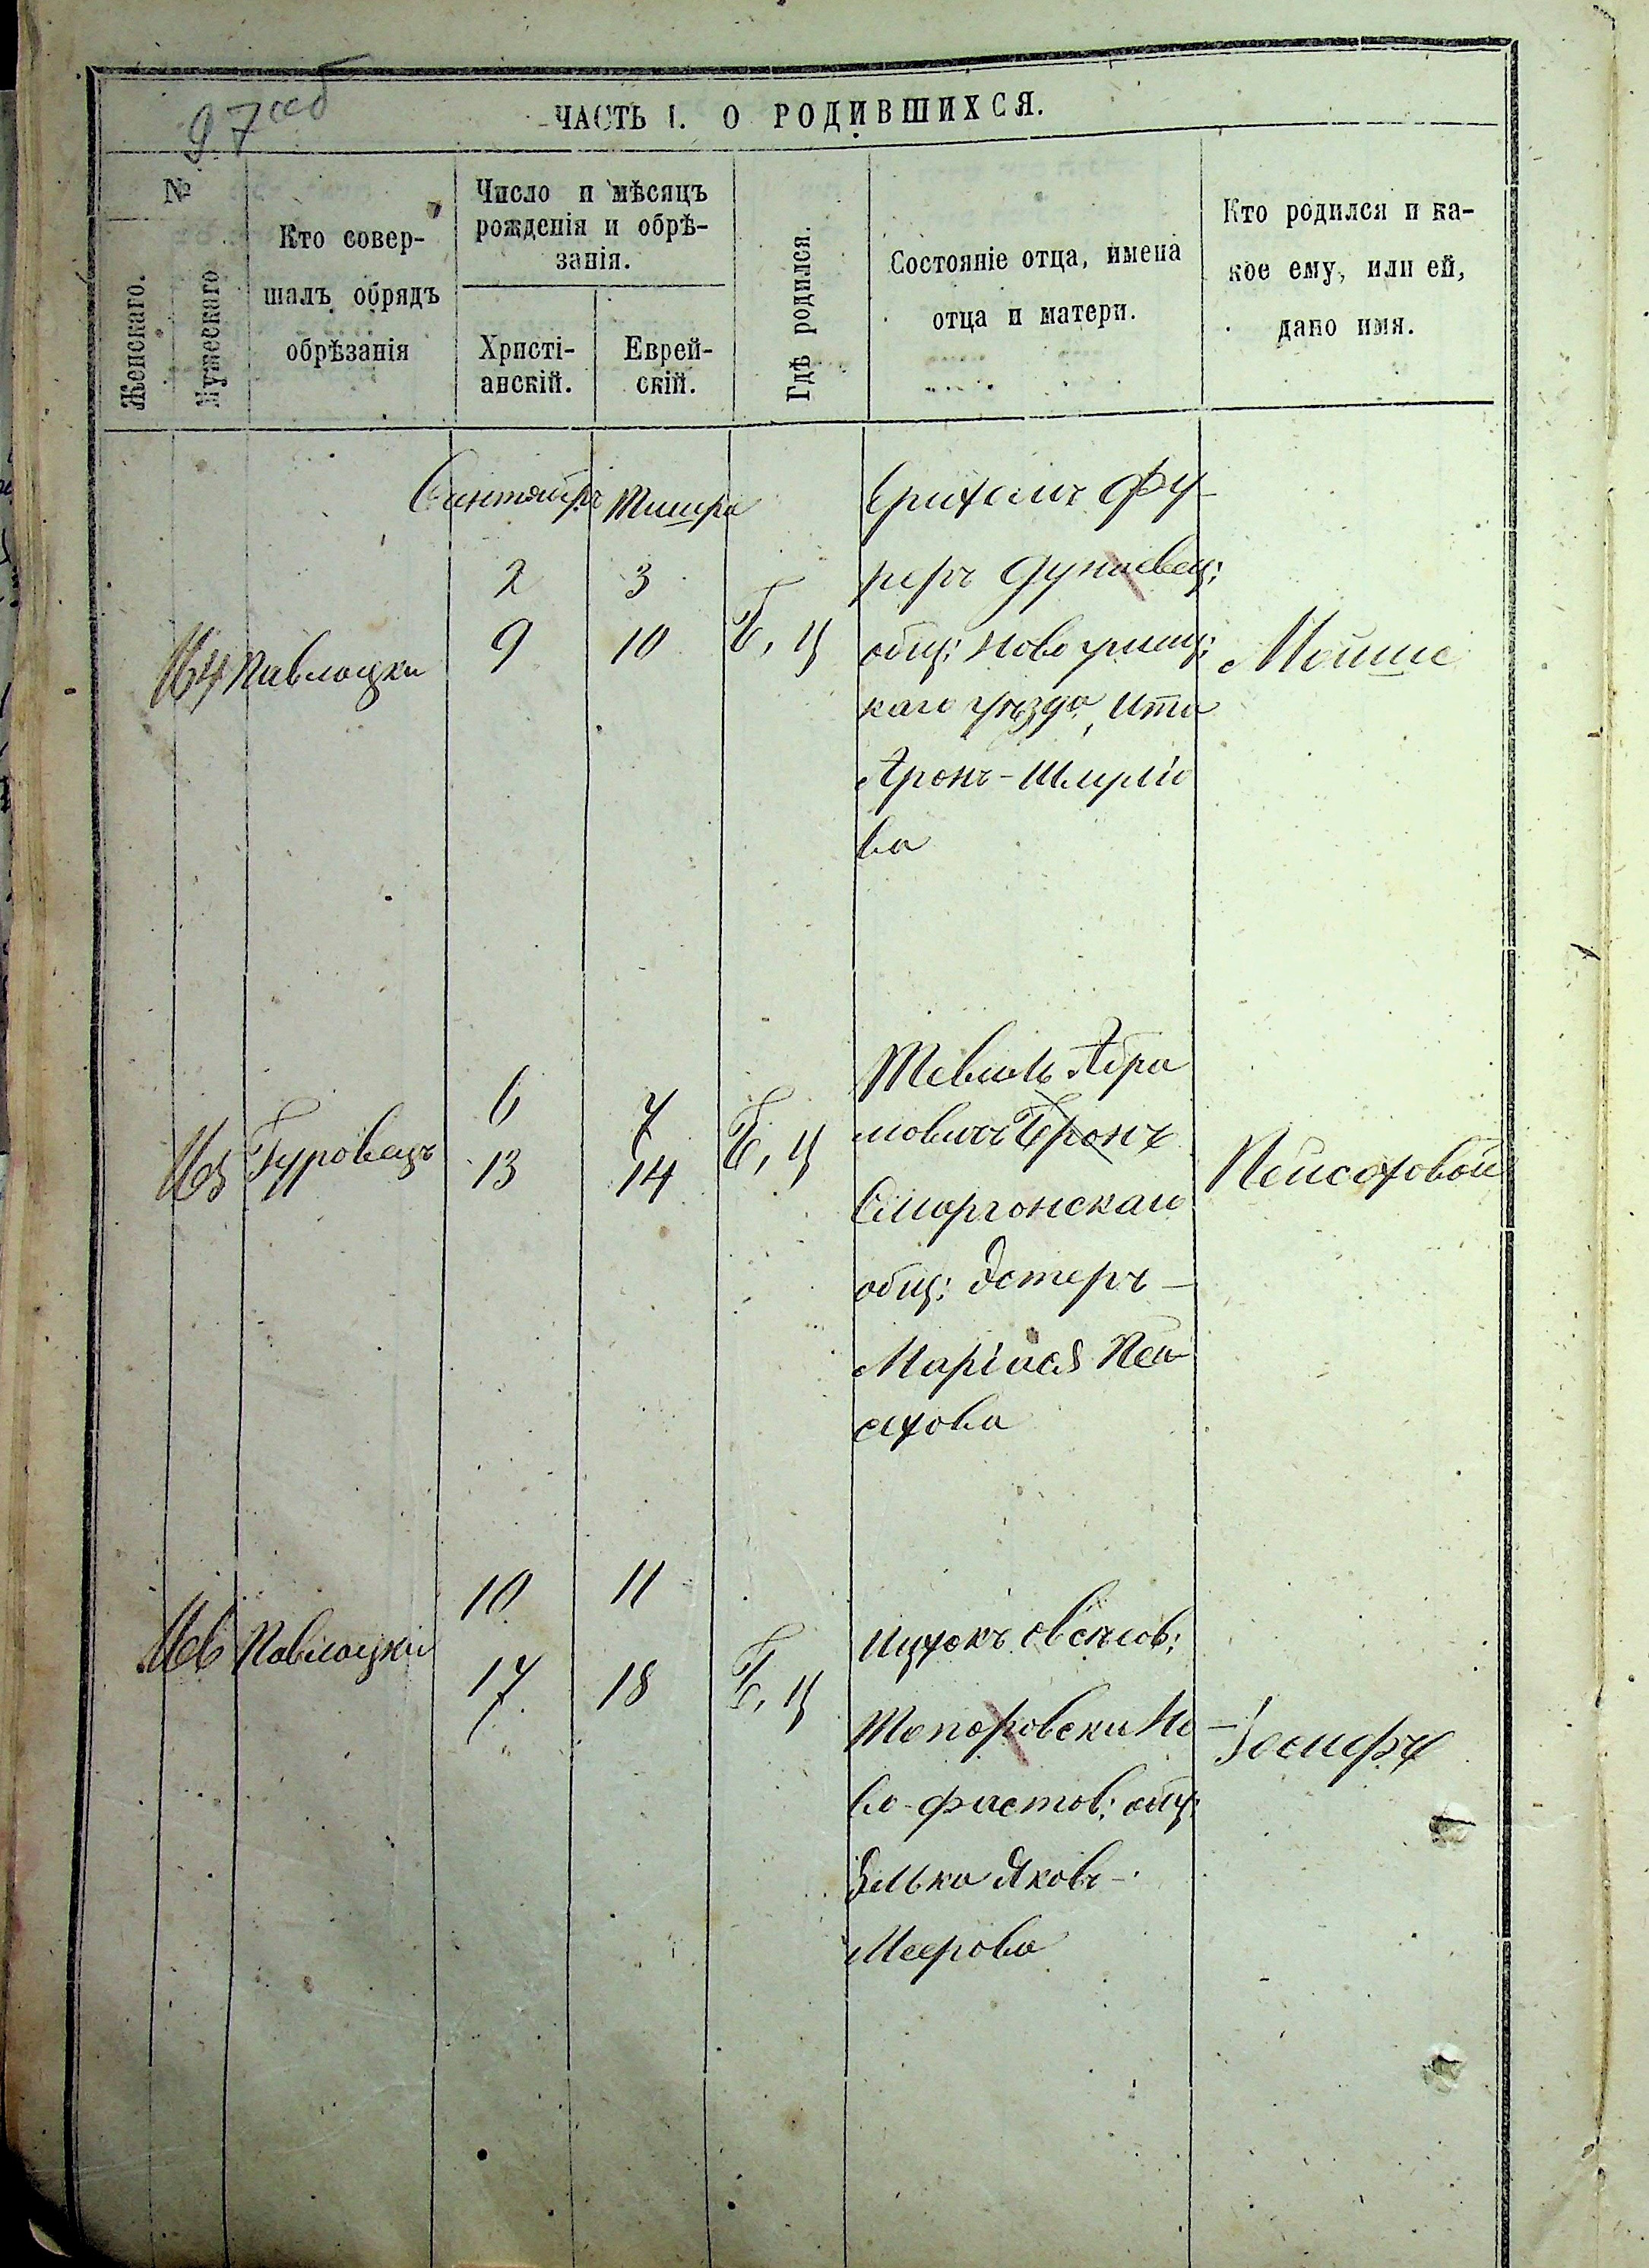 97 об
ЧАСТЬ I. О РОДИВШИХСЯ.
№
Женскаго.
Мужескаго
Кто совер-
шалъ обрядъ
обрѣзанія
Число и мѣсяцъ
рожденія и обрѣ-
занія.
Христі-
анскій.
Еврей-
скій.
Гдѣ родился.
Состояніе отца, имена
отца и матери.
Кто родился и ка-
кое ему, или ей,
дано имя.
Сентябрь Тишри
164 Павлоцки
2 3
9 10
Б, Ц
Ерихемъ Фу-
реръ Дунаевец:
общ: Новоушиц:
каго уѣзда, Ита
Аронъ-Шмулю
ва
Мойше
165 Гуровецъ
6 7
13 14
Б, Ц
Тевель Абра
мовичъ Бронъ
Сморгонскаго
общ: Эстеръ-
Маріася Пей
сахова
Пейсаховой
166 Павлоцки
10 11
17 18
Б, Ц
Ицхокъ Овсѣев:
Топоровски Но
во-фастов: общ:
Элька Яковъ-
Меерова
Іосифъ